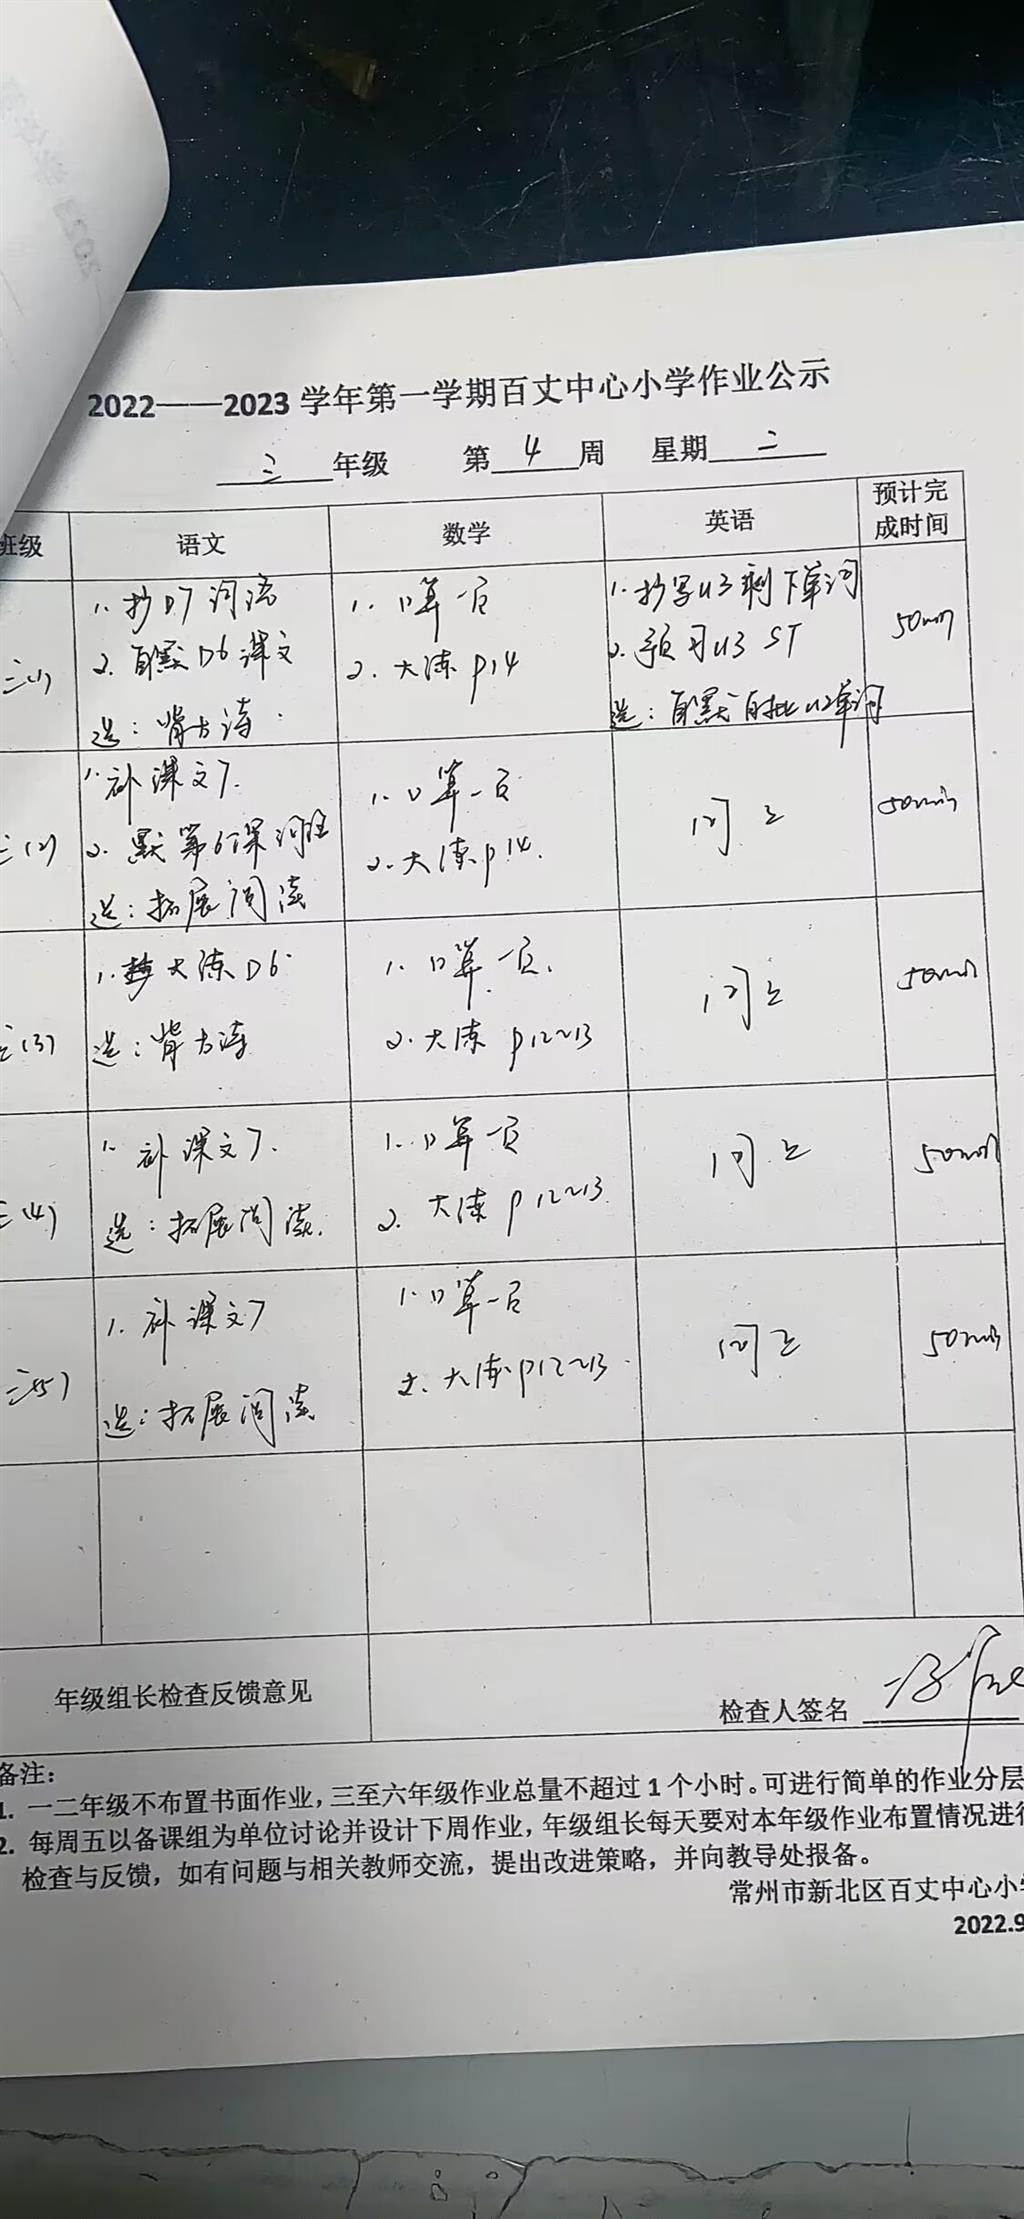 2022——2023学年第一学期百丈中心小学作业公示
三年级 第4周 星期二
班级 语文 数学 英语 预计完成时间
三(1)
1. 抄D7词语
2. 自默D6课文
选：背古诗
1. 口算一页
2. 大练P14
1. 抄写U3剩下单词
2. 预习U3 ST
选：自默自批U2单词
50min
三(2)
1. 补课文7.
2. 默第6课词语
选：拓展阅读
1. 口算一页
2. 大练P14.
同上
50min
三(3)
1. 大练D6
选：背古诗
1. 口算一页.
2. 大练P12~13
同上
50min
三(4)
1. 补课文7.
选：拓展阅读.
1. 口算一页
2. 大练P12~13
同上
50min
三(5)
1. 补课文7
选：拓展阅读
1. 口算一页
2. 大练P12~13
同上
50min
年级组长检查反馈意见
检查人签名
备注：
1. 一二年级不布置书面作业，三至六年级作业总量不超过1个小时。可进行简单的作业分层
2. 每周五以备课组为单位讨论并设计下周作业，年级组长每天要对本年级作业布置情况进行
检查与反馈，如有问题与相关教师交流，提出改进策略，并向教导处报备。
常州市新北区百丈中心小学
2022.9